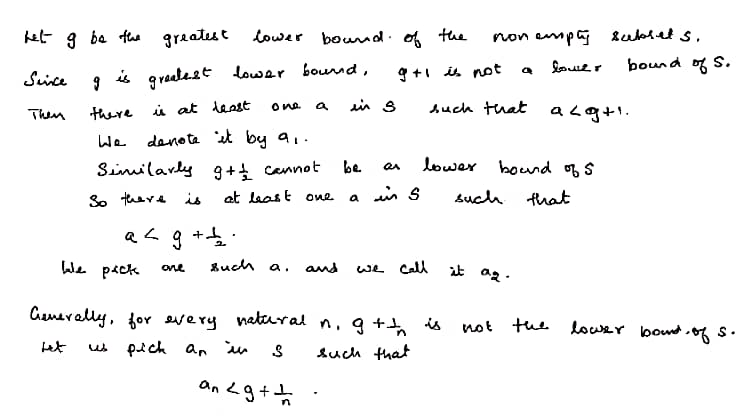 Let g be the greatest lower bound. of the non empty subset S.
Since g is greatest lower bound, g+1 is not a lower bound of S.
Then there is at least one a in S such that a < g+1.
We denote it by a₁.
Similarly g+½ cannot be an lower bound of S
So there is at least one a in S such that
a < g + ½.
We pick one such a. and we call it a₂.
Generally, for every natural n, g + 1/n is not the lower bound of S.
Let us pick aₙ in S such that
aₙ < g + 1/n.